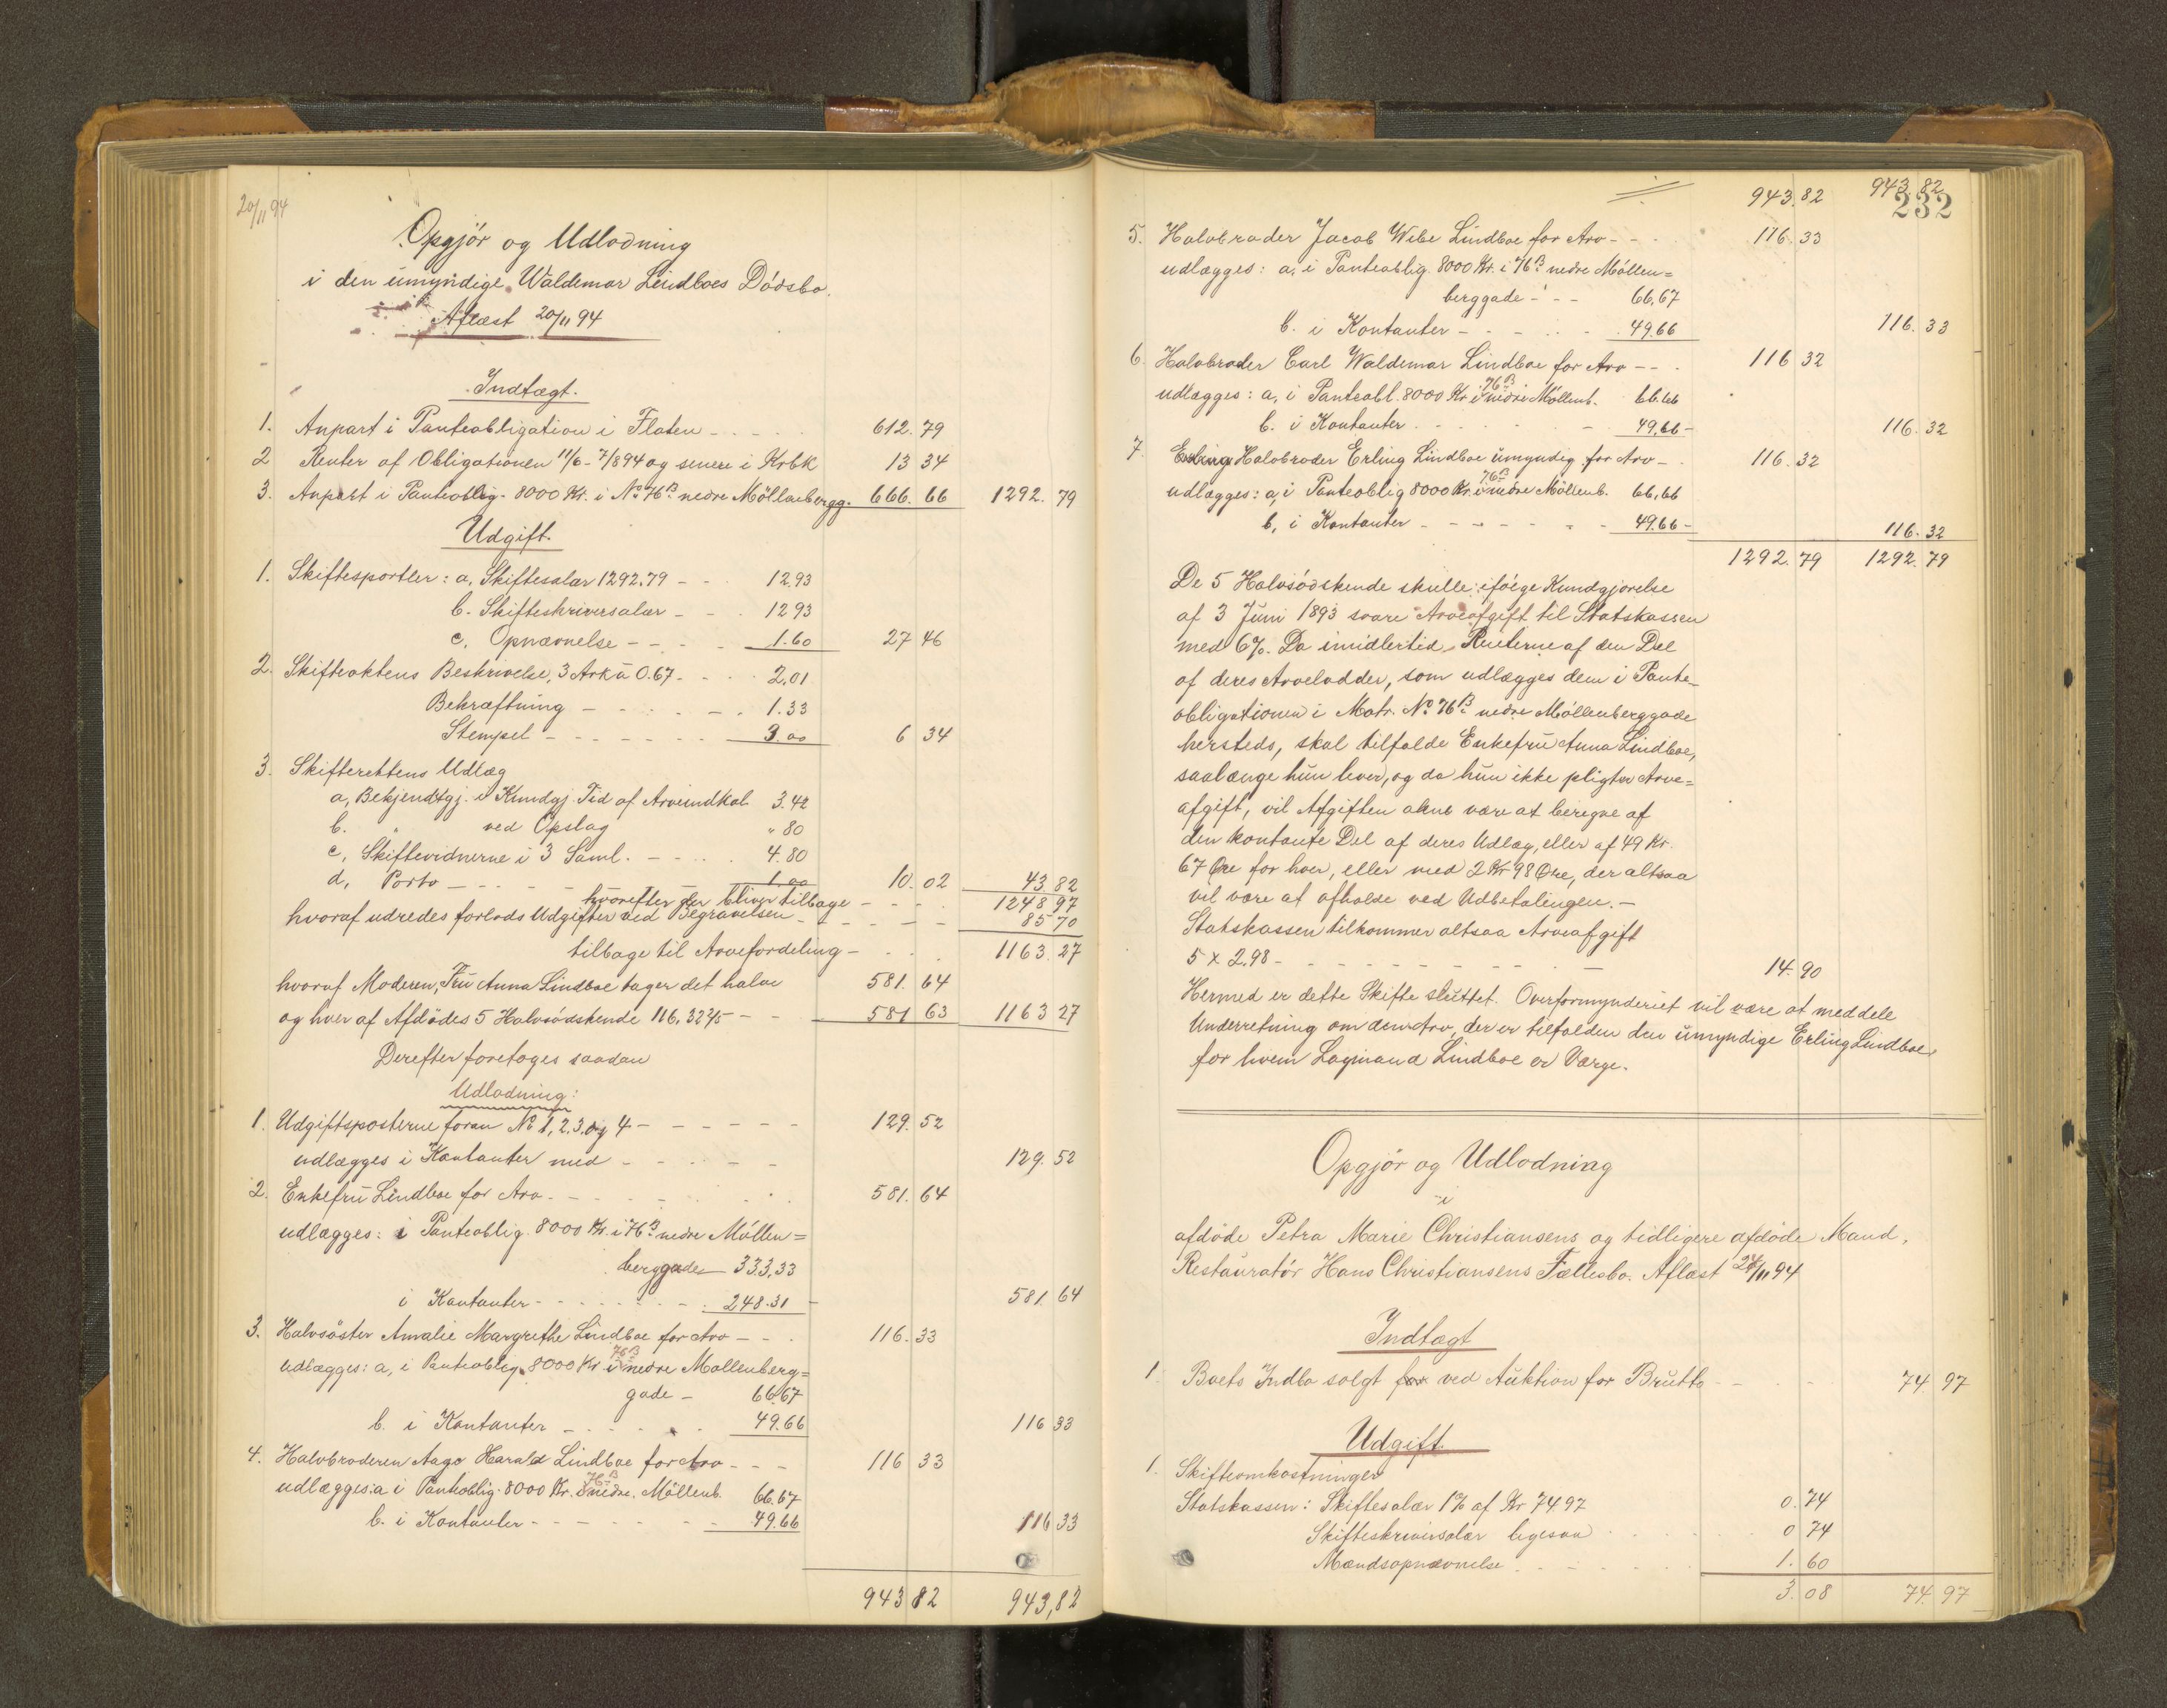 20/11 94
Opgjör og Udlodning
i den umyndige Waldemar Lindboes Dödsbo.
Aflæst 20/11 94
Indtægt.
1. Anpart i Panteobligation i Flaten - - - 612.79
2 Renter af Obligationen 11/6 - 7/8 94 og senere i Krbk 13 34
3. Anpart i Panteoblig. 8000 Kr. i No 76B nedre Möllenbergg. 666.66 1292.79
Udgift.
1. Skiftesportler: a, Skiftesalær 1292.79 - - 12.93
b. Skifteskriversalær - - 12 93
c. Opnævnelse - - - 1.60 27 46
2. Skifteaktens Beskrivelse, 3 Ark à 0.67 - - 2.01
Bekræftning - - - - 1.33
Stempel - - - - - 3.00 6 34
3. Skifterettens Udlæg
a, Bekjendtgj. i Kundgj. Tid af Arveindkal. 3.42
b. " ved Opslag " 80
c, Skiftevidnerne i 3 Saml. - - - 4.80
d, Porto - - - - 1.00 10.02 43 82
hvorefter der bliver tilbage - - - 1248 97
hvoraf udredes forlods Udgifter ved Begravelsen - - - 85 70
tilbage til Arvefordeling - - - 1163.27
hvoraf Moderen, Fru Anna Lindboe tager det halve 581.64
og hver af Afdödes 5 Halvsödskende 116,32 3/5 - - 581 63 1163 27
Derefter foretages saadan
Udlodning:
1. Udgiftsposterne foran No 1, 2, 3 og 4 - - - - - 129.52
udlægges i Kontanter med - - - - 129.52
2. Enkefru Lindboe for Arv - - - - 581.64
udlægges: i Panteoblig. 8000 Kr. i 76B nedre Möllen=
berggade - 333,33
i Kontanter - - - - - 248.31 581.64
3. Halvsöster Amalie Margrethe Lindboe for Arv - - - 116.33
udlægges: a, i Panteoblig. 8000 Kr i 76B nedre Möllenberg=
gade - 66.67
b. i Kontanter - - - - 49.66 116 33
4. Halvbroderen Aage Harald Lindboe for Arv - - - 116 33
udlægges: a i Panteoblig. 8000 Kr. i 76B nedre Möllenb. 66.67
b. i Kontanter - - - - - 49.66 116 33
943 82 943,82
943.82 943.82
232
5. Halvbroder Jacob Wibe Lindboe for Arv - - - 116.33
udlægges: a, i Panteoblig. 8000 Kr. i 76B nedre Möllen=
berggade - - - 66,67
b. i Kontanter - - - - - 49.66 116.33
6. Halvbroder Carl Waldemar Lindboe for Arv - - - 116 32
udlægges: a, i Panteobl. 8000 Kr i 76B nedre Möllenb. 66.66
b. i Kontanter - - - - 49,66 - 116.32
7. Halvbroder Erling Lindboe umyndig for Arv - - 116.32
udlægges: a, i Panteoblig 8000 Kr. i 76B nedre Möllenb. 66,66
b, i Kontanter - - - - - - 49.66 - 116.32
1292.79 1292.79
De 5 Halvsödskende skulle ifölge Kundgjörelse
af 3 Juni 1893 svare Arveafgift til Statskassen
med 6%. Da imidlertid Renterne af den Del
af deres Arvelodder, som udlægges dem i Pante-
obligationen i Matr. No 76B nedre Möllenberggade
hersteds, skal tilfalde Enkefru Anna Lindboe,
saalænge hun lever, og da hun ikke pligter Arve=
afgift, vil Afgiften alene være at beregne af
den kontante Del af deres Udlæg, eller af 49 Kr.
67 Öre for hver, eller med 2 Kr 98 Öre, der altsaa
vil være at afholde ved Udbetalingen. -
Statskassen tilkommer altsaa Arveafgift
5 x 2.98 - - - - - - - - 14.90
Hermed er dette Skifte sluttet. Overformynderiet vil være at meddele
Underretning om den Arv, der er tilfalden den umyndige Erling Lindboe,
for hvem Lagmand Lindboe er Værge.
Opgjör og Udlodning
i
afdöde Petra Marie Christiansens og tidligere afdöde Mand,
Restauratör Hans Christiansens Fællesbo. Aflæst 24/11 94
Indtægt
1 Boets Indbo solgt for ved Auktion for Brutto - - - 74 97
Udgift.
1. Skifteomkostninger
Statskassen: Skiftesalær 1% af Kr 74 97 0.74
Skifteskriversalær ligesaa 0 74
Mændsopnævnelse 1.60
3.08 74.97